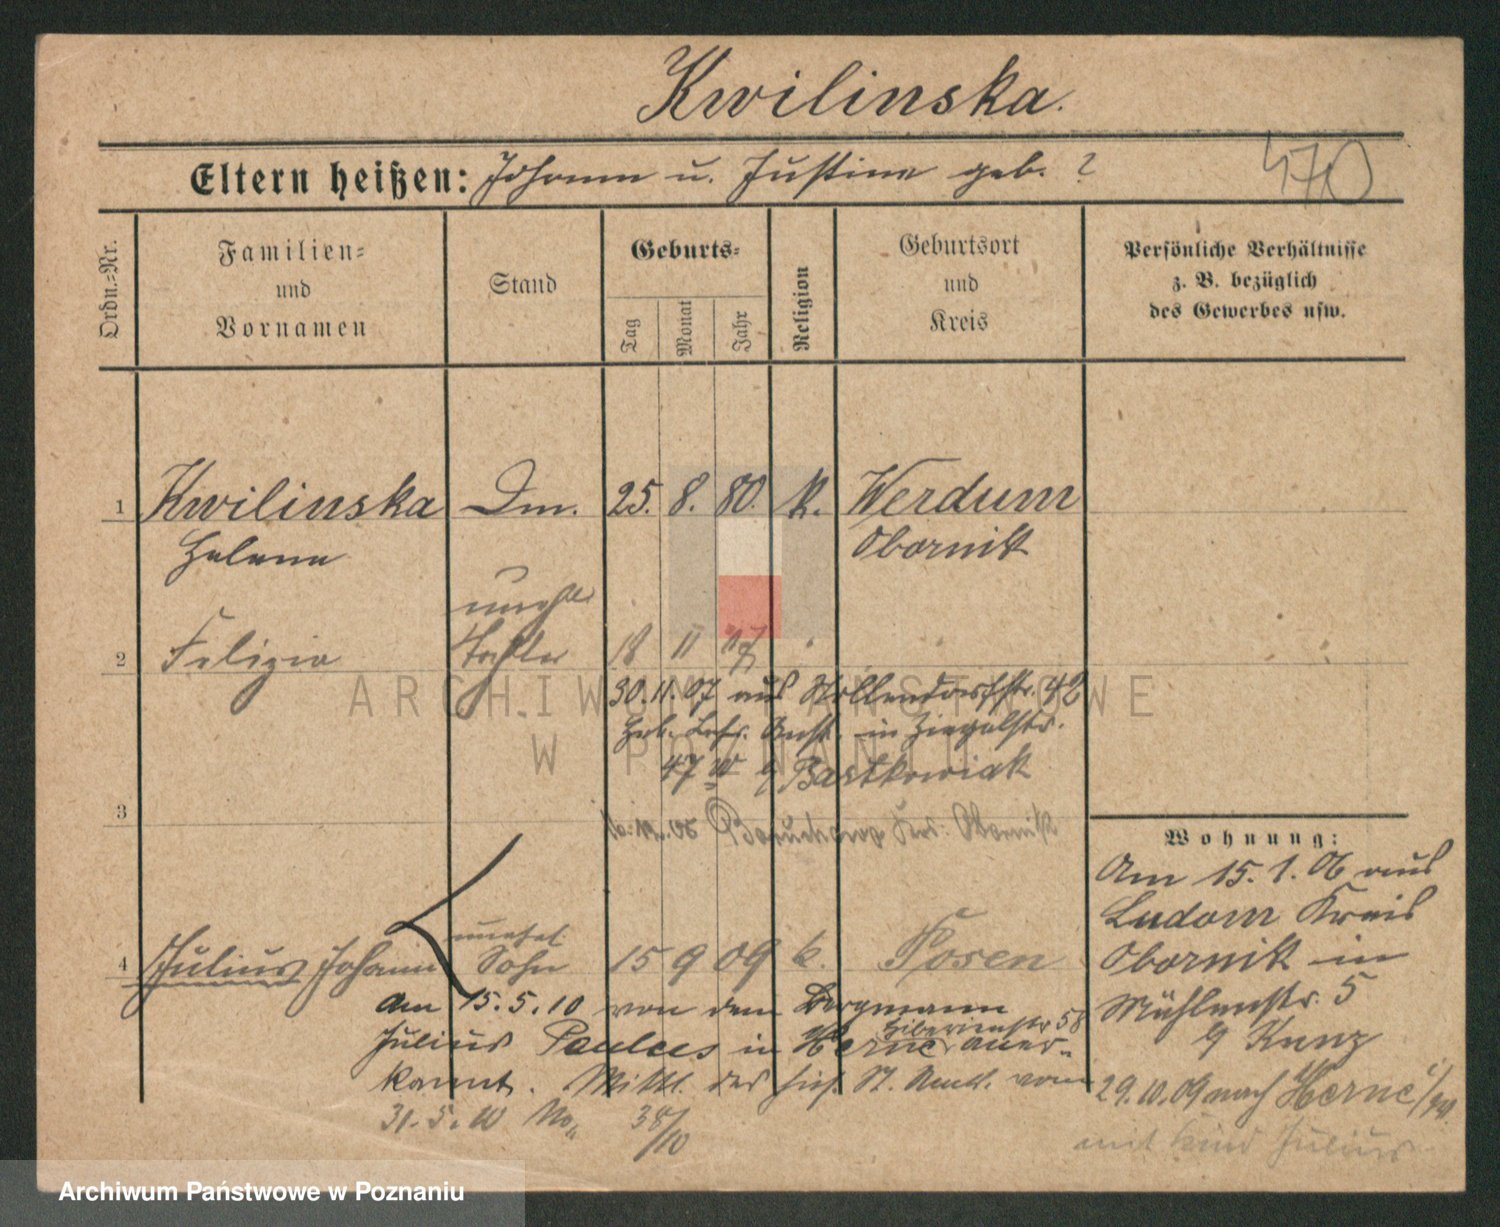 Kwilinska.
Eltern heißen: Johann u. Justine geb. ?
470
Ordn.-Nr.
Familien- und Vornamen
Stand
Geburts-
Tag
Monat
Jahr
Religion
Geburtsort und Kreis
Persönliche Verhältnisse z. B. bezüglich des Gewerbes usw.
1 Kwilinska Dm. 25. 8. 80. k. Werdum
Helene Obornik
unehl.
2 Felizia Tochter 18 11 07
30.11.07 aus Nollendorfstr. 42
in Ziegelstr.
47 IV b/ Bartkowiak
3
Obornik
Wohnung:
Am 15.1.06 aus
Ludom Kreis
Obornik in
Mühlenstr. 5
b/ Kunz
29.10.09 nach Herne i/W.
mit Kind Julius
unehel.
4 Julius Johann Sohn 15 9 09 k. Posen
Am 15.5.10 von dem Bergmann
Julius Paulus in Herne, Siberienstr 58 aner-
kannt. Mittl. des hies. St. Amts. vom
31.5.10 No. 38/10
ARCHIWUM PAŃSTWOWE
W POZNANIU
Archiwum Państwowe w Poznaniu